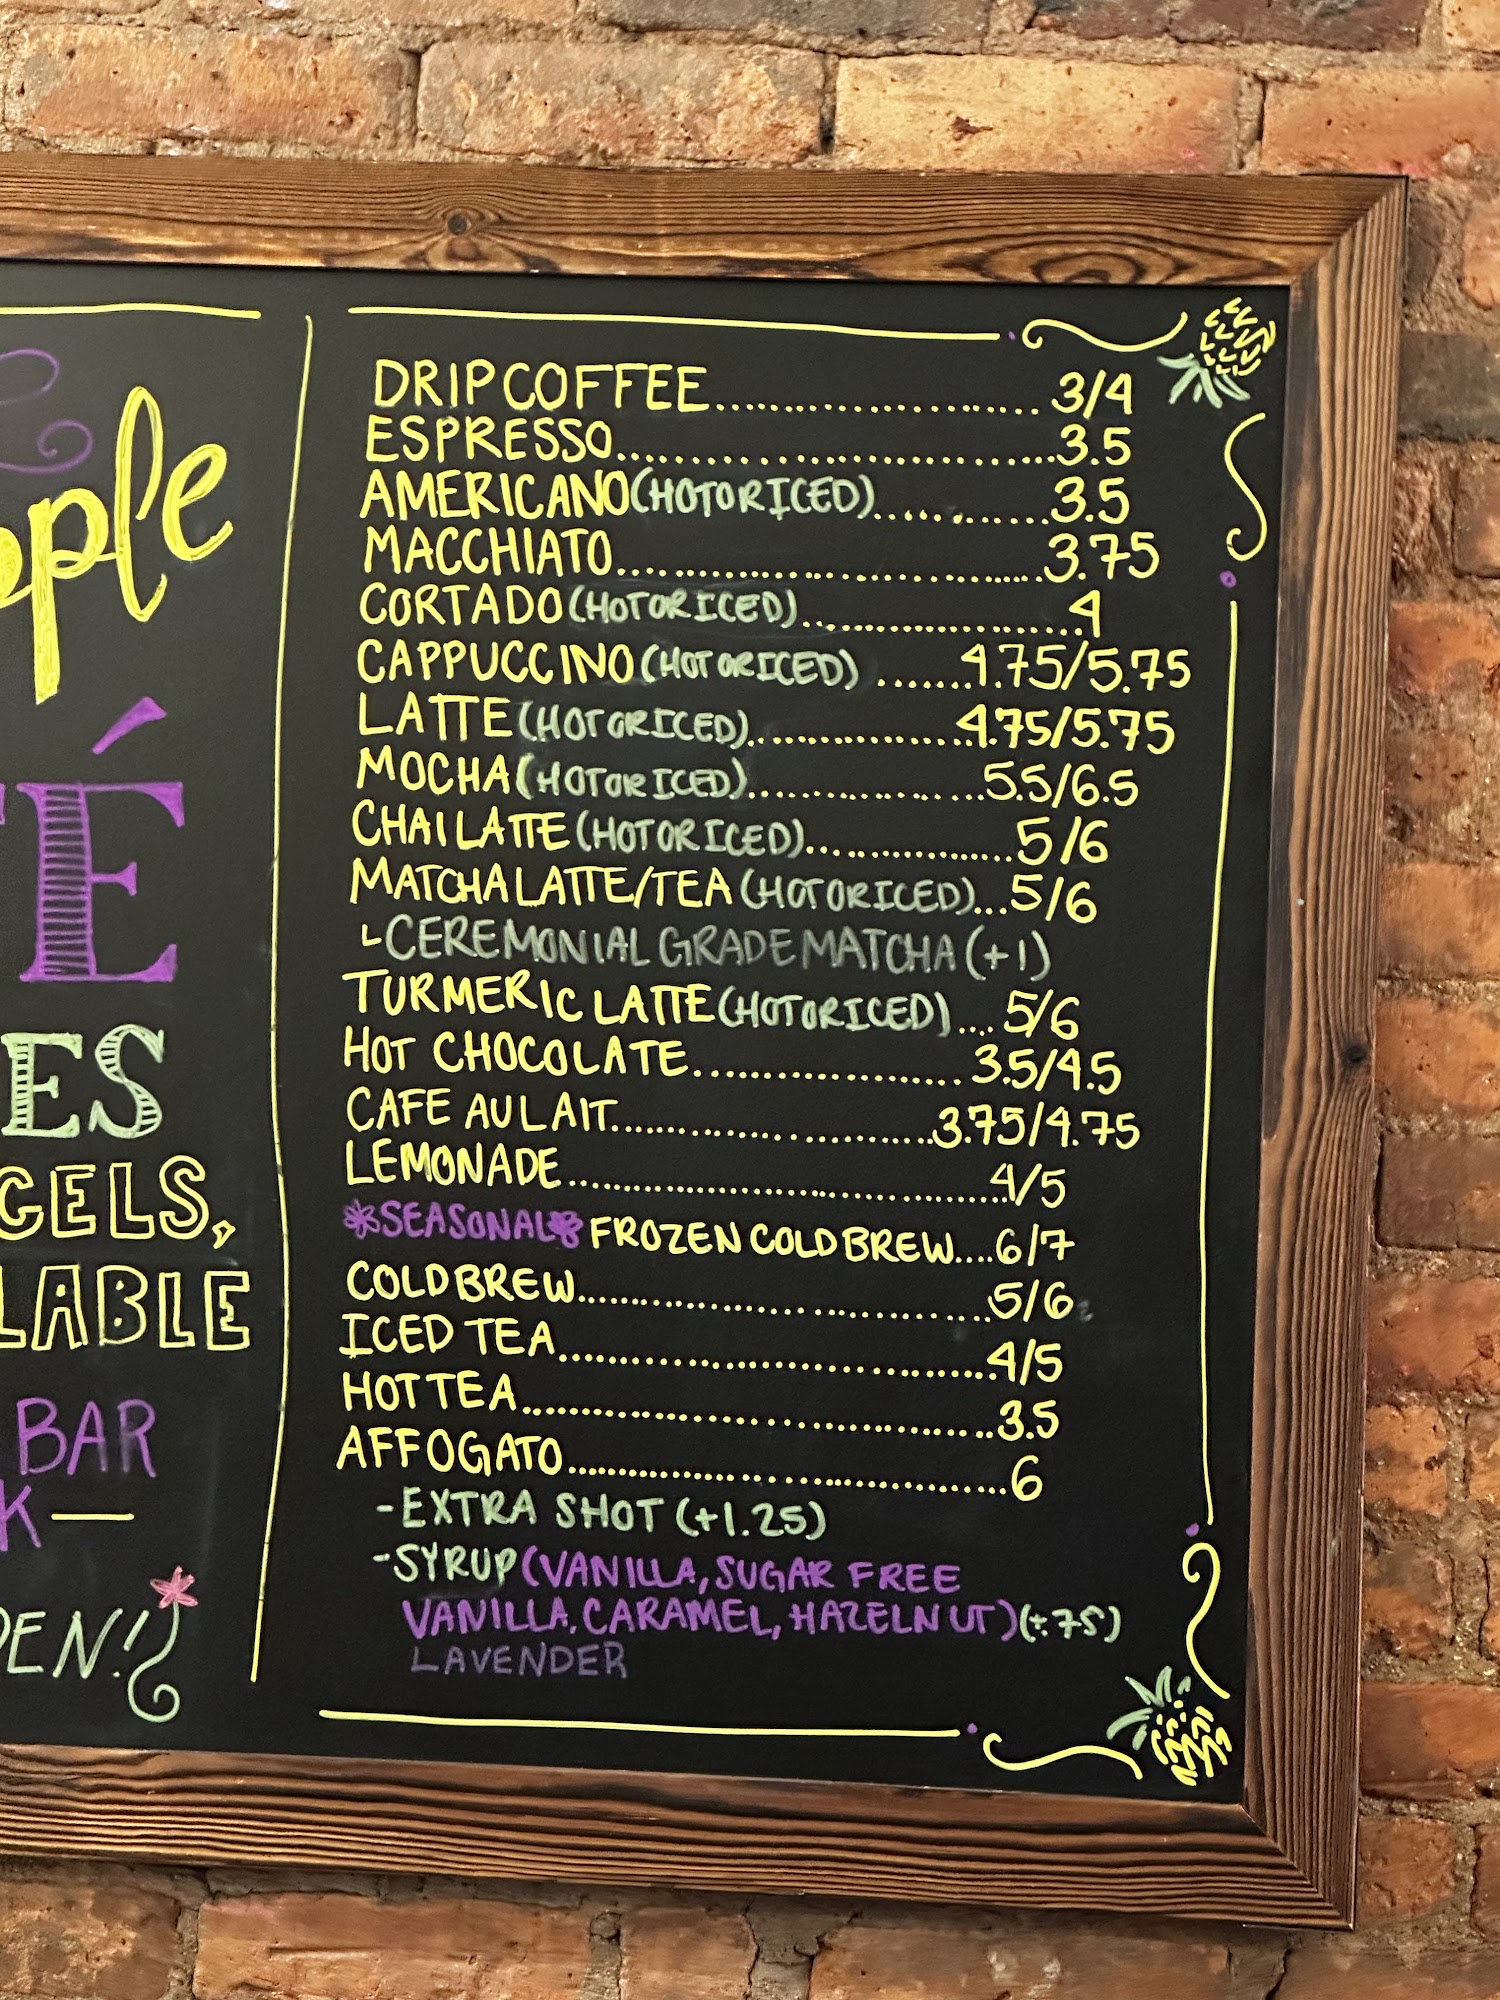 pple
TÉ
ES
GELS,
LABLE
BAR
K—
PEN!
DRIP COFFEE.......................... 3/4
ESPRESSO..........................3.5
AMERICANO (HOT OR ICED)............3.5
MACCHIATO..........................3.75
CORTADO (HOT OR ICED)....................4
CAPPUCCINO (HOT OR ICED) .......4.75/5.75
LATTE (HOT OR ICED)....................4.75/5.75
MOCHA (HOT OR ICED)....................5.5/6.5
CHAI LATTE (HOT OR ICED)..................5/6
MATCHA LATTE/TEA (HOT OR ICED)...5/6
CEREMONIAL GRADE MATCHA (+1)
TURMERIC LATTE (HOT OR ICED).... 5/6
HOT CHOCOLATE.......................... 3.5/4.5
CAFE AU LAIT..........................3.75/4.75
LEMONADE....................................4/5
SEASONAL FROZEN COLD BREW....6/7
COLD BREW....................................5/6
ICED TEA....................................4/5
HOT TEA....................................3.5
AFFOGATO....................................6
-EXTRA SHOT (+1.25)
-SYRUP (VANILLA, SUGAR FREE
VANILLA, CARAMEL, HAZELNUT) (+.75)
LAVENDER